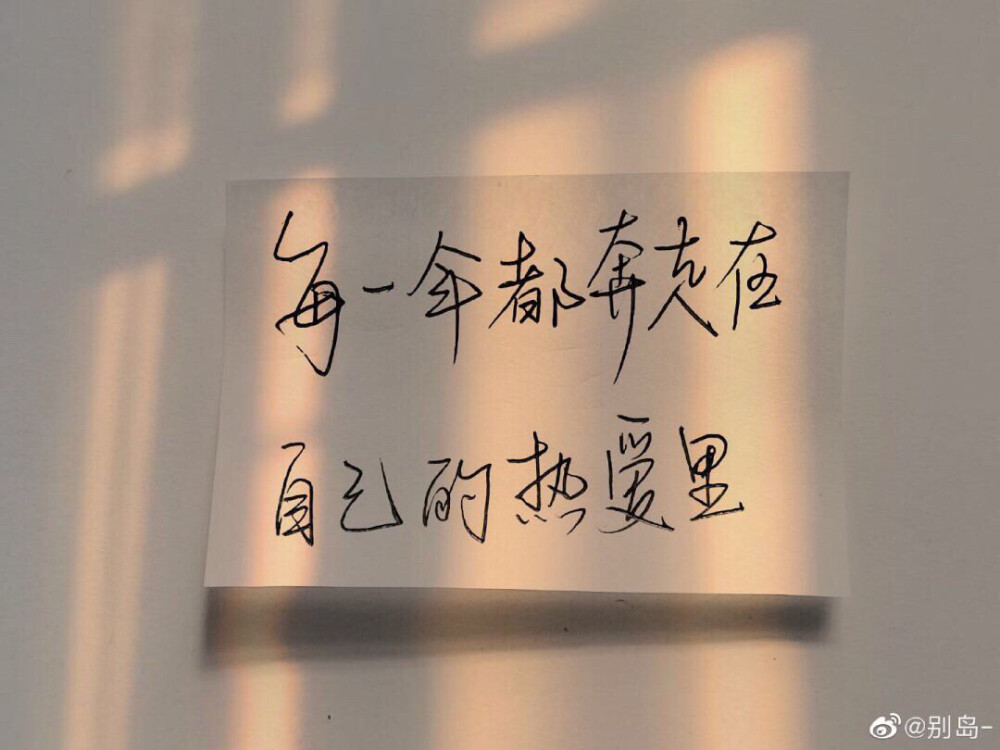 每一年都奔走在
自己的热爱里
@别岛-